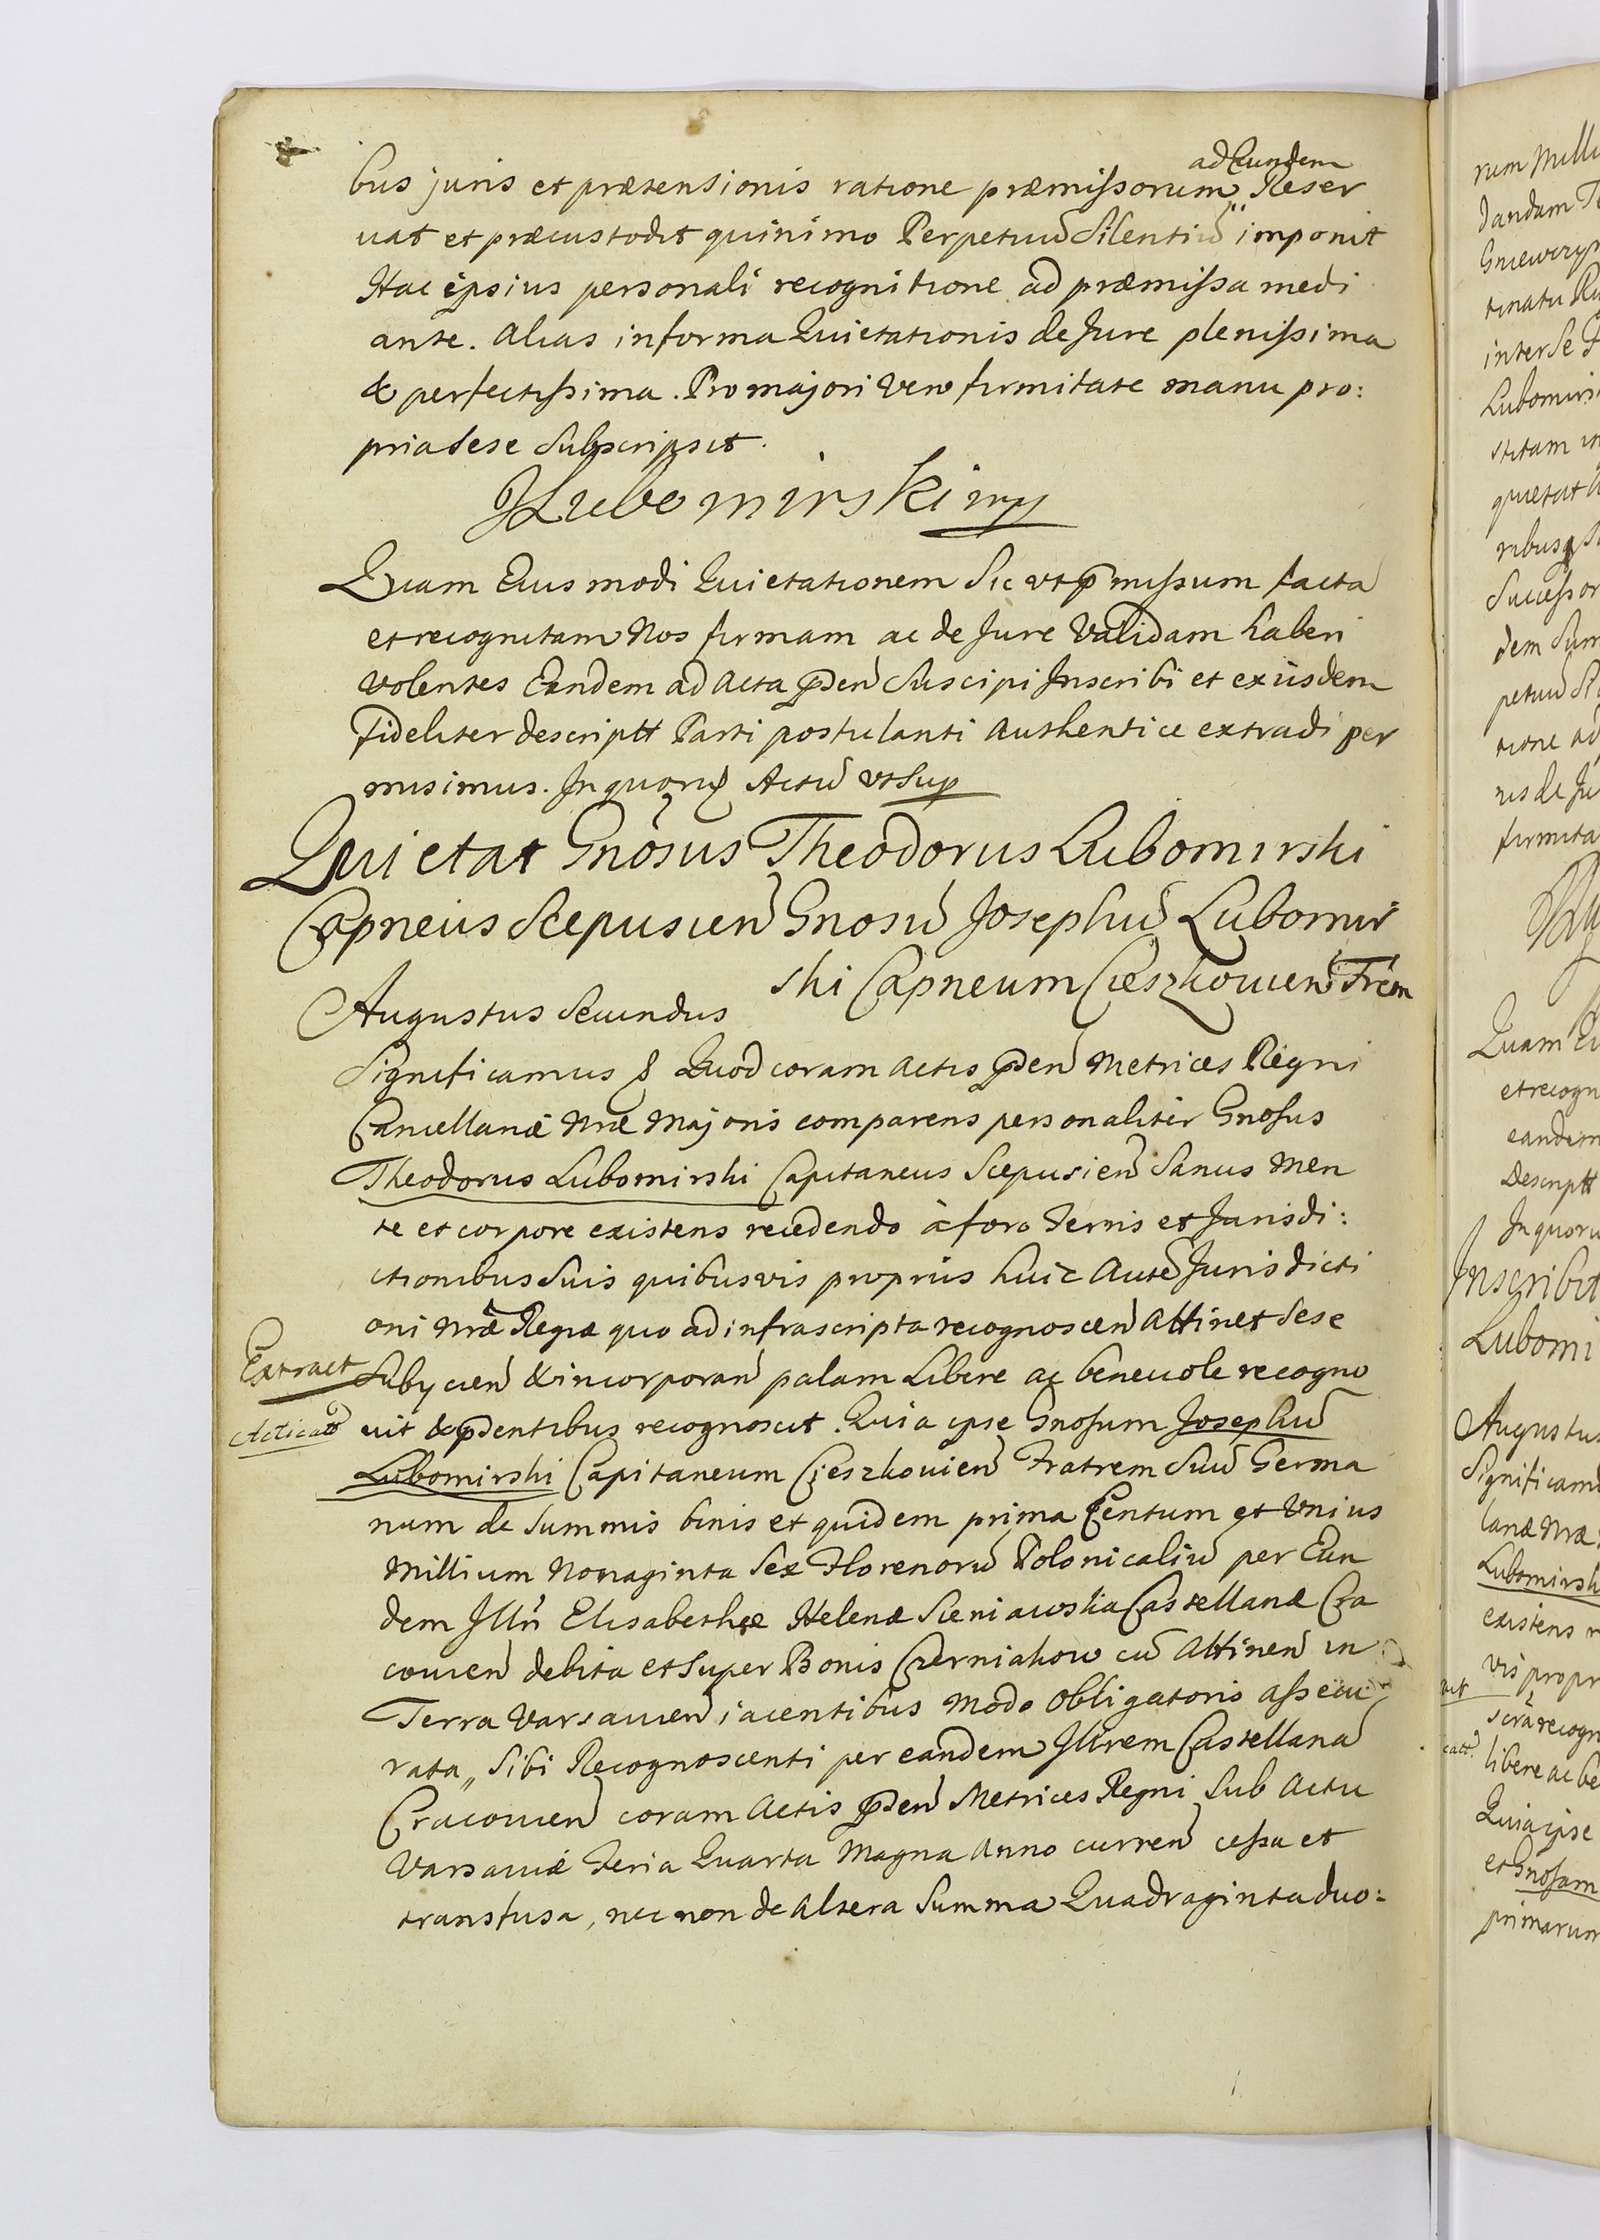 ad Eundem
bus juris et prætensionis ratione præmissorum Reser
uat et præcustodit quinimo Perpetuũ Silentiũ imponit
Hac ipsius personali recognitione ad præmissa medi
ante. Alias in forma Quietationis de Jure plenissima
& perfectissima. Pro majori vero firmitate manu pro:
pria sese Subscripsit.
JLubomirski mp
Quam Eiusmodi Quietationem Sic vt p̄missum facta
et recognitam Nos firmam ac de Jure Validam haberi
volentes Eandem ad Acta p̄den̄ Suscipi Inscribi et ex iisdem
fideliter descriptt Parti postulanti Authentice extradi per
misimus. In quorũ Actũ vt Sup
Quietat Gnosus Theodorus Lubomirski
Capneus Scepusien̄ Gnosũ Josephũ Lubomir
ski Capneum Cieszkouien̄ Frem
Augustus Secundus
Significamus & Quod coram Actis p̄den̄ Metrices Regni
Cancellariæ Nræ Majoris comparens personaliter Gnosus
Theodorus Lubomirski Capitaneus Scepusien̄ Sanus Men
te et corpore existens recedendo à foro Terris et Jurisdi:
ctionibus Suis quibusvis propriis huic Autẽ Jurisdicti
oni Nræ Regiæ quo ad infrascripta recognoscen̄ Attinet Sese
Extract
Subycien̄ & incorporan̄ palam Libere ac beneuole recogno
Acticatũ
uit & p̄dentibus recognoscit. Quia ipse Gnosum Josephũ
Lubomirski Capitaneum Cieszkouien̄ Fratrem Suũ Germa
num de Summis binis et quidem prima Centum et Vnius
Millium Nonaginta Sex Florenorũ Polonicaliũ per Ean
dem Illn̄ Elisabethæ Helenæ Sieniawska Castellanæ Cra
couien̄ debita et Super Bonis Czerniakow cũ Attinen̄ in
Terra Varsauien̄ iacentibus Modo Obligatorio assecu
rata,, Sibi Recognoscenti per eandem Illrem Castellanã
Cracouien̄ coram Actis p̄den̄ Metrices Regni Sub Actu
Varsauiæ Feria Quarta Magna Anno curren̄ cessa et
transfusa, nec non de Altera Summa Quadraginta duo: